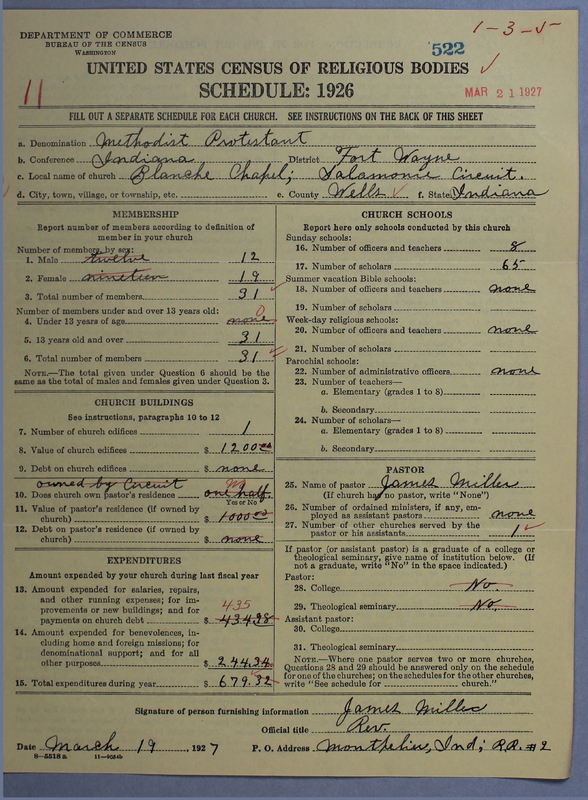 DEPARTMENT OF COMMERCE
BUREAU OF THE CENSUS
WASHINGTON
1-3-5
522
UNITED STATES CENSUS OF RELIGIOUS BODIES
SCHEDULE: 1926
11
MAR 21 1927
FILL OUT A SEPARATE SCHEDULE FOR EACH CHURCH. SEE INSTRUCTIONS ON THE BACK OF THIS SHEET
a. Denomination Methodist Protestant
b. Conference Indiana District Fort Wayne
c. Local name of church Blanche Chapel; Salamonie Circuit.
d. City, town, village, or township, etc. e. County Wells f. State Indiana
MEMBERSHIP
Report number of members according to definition of
member in your church
Number of members, by sex:
1. Male twelve 12
2. Female nineteen 19
3. Total number of members 31
Number of members under and over 13 years old:
4. Under 13 years of age none 0
5. 13 years old and over 31
6. Total number of members 31
NOTE.—The total given under Question 6 should be the
same as the total of males and females given under Question 3.
CHURCH BUILDINGS
See instructions, paragraphs 10 to 12
7. Number of church edifices 1
8. Value of church edifices $ 1200 00
9. Debt on church edifices $ none
owned by Circuit
10. Does church own pastor's residence one half.
Yes or No
11. Value of pastor's residence (if owned by
church) $ 1000 00
12. Debt on pastor's residence (if owned by
church) $ none
EXPENDITURES
Amount expended by your church during last fiscal year
13. Amount expended for salaries, repairs,
and other running expenses; for im-
provements or new buildings; and for
435
payments on church debt $ 434.98
14. Amount expended for benevolences, in-
cluding home and foreign missions; for
denominational support; and for all
other purposes $ 244.34
15. Total expenditures during year $ 679.32
CHURCH SCHOOLS
Report here only schools conducted by this church
Sunday schools:
16. Number of officers and teachers 8
17. Number of scholars 65
Summer vacation Bible schools:
18. Number of officers and teachers none
19. Number of scholars
Week-day religious schools:
20. Number of officers and teachers none
21. Number of scholars
Parochial schools:
22. Number of administrative officers none
23. Number of teachers—
a. Elementary (grades 1 to 8)
b. Secondary
24. Number of scholars—
a. Elementary (grades 1 to 8)
b. Secondary
PASTOR
25. Name of pastor James Miller
(If church has no pastor, write "None")
26. Number of ordained ministers, if any, em-
ployed as assistant pastors none
27. Number of other churches served by the
pastor or his assistants 1
If pastor (or assistant pastor) is a graduate of a college or
theological seminary, give name of institution below. (If
not a graduate, write "No" in the space indicated.)
Pastor:
28. College No
29. Theological seminary No.
Assistant pastor:
30. College
31. Theological seminary
NOTE.—Where one pastor serves two or more churches,
Questions 28 and 29 should be answered only on the schedule
for one of the churches; on the schedules for the other churches,
write "See schedule for church."
Signature of person furnishing information James Miller
Official title Rev.
Date March 19, 1927 P. O. Address Montpelier, Ind; R.R. #2
8—5518 a 11—9684b